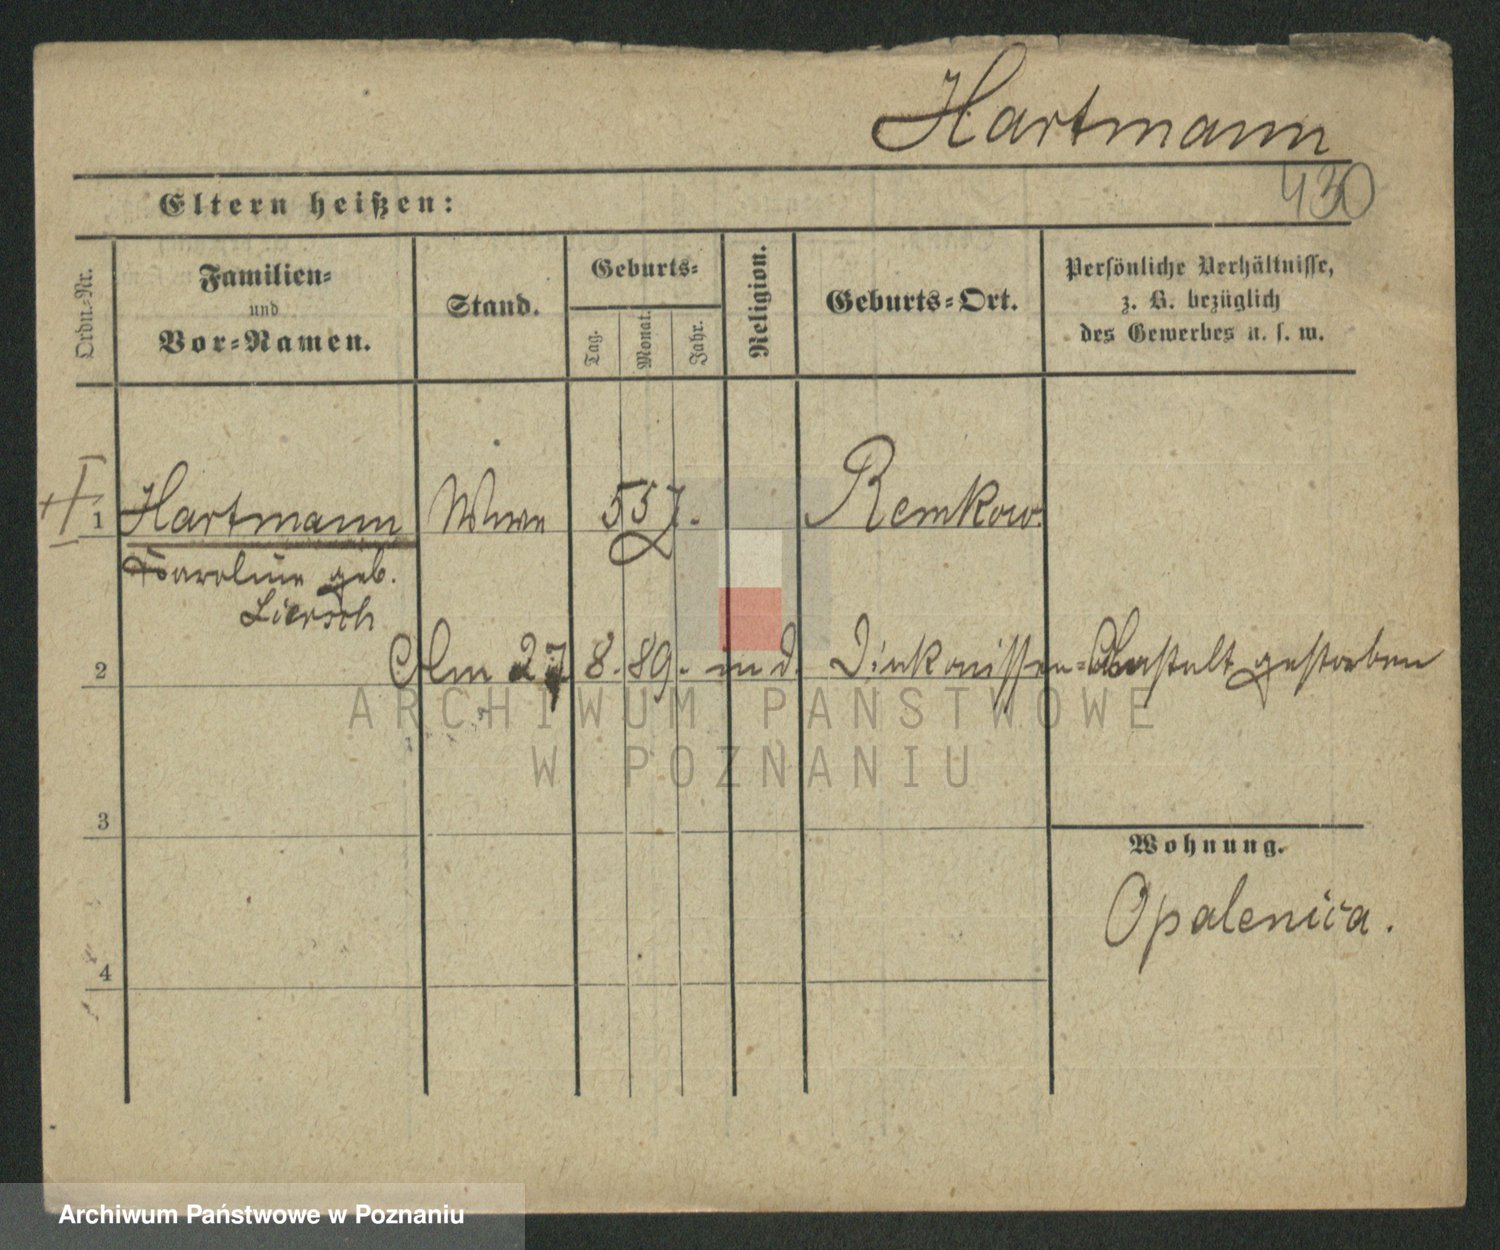 Hartmann
430
Eltern heißen:
Ordn.-Nr.
Familien-
und
Vor-Namen.
Stand.
Geburts-
Tag.
Monat.
Jahr.
Religion.
Geburts-Ort.
Persönliche Verhältnisse,
z. B. bezüglich
des Gewerbes u. s. w.
1 Hartmann Wwe 55 J. Remkow
Karoline geb.
Liersch
2 Am 27 8. 89. in d. Diakonissen-Anstalt gestorben
3
Wohnung.
Opalenica.
4
ARCHIWUM PAŃSTWOWE
W POZNANIU
Archiwum Państwowe w Poznaniu